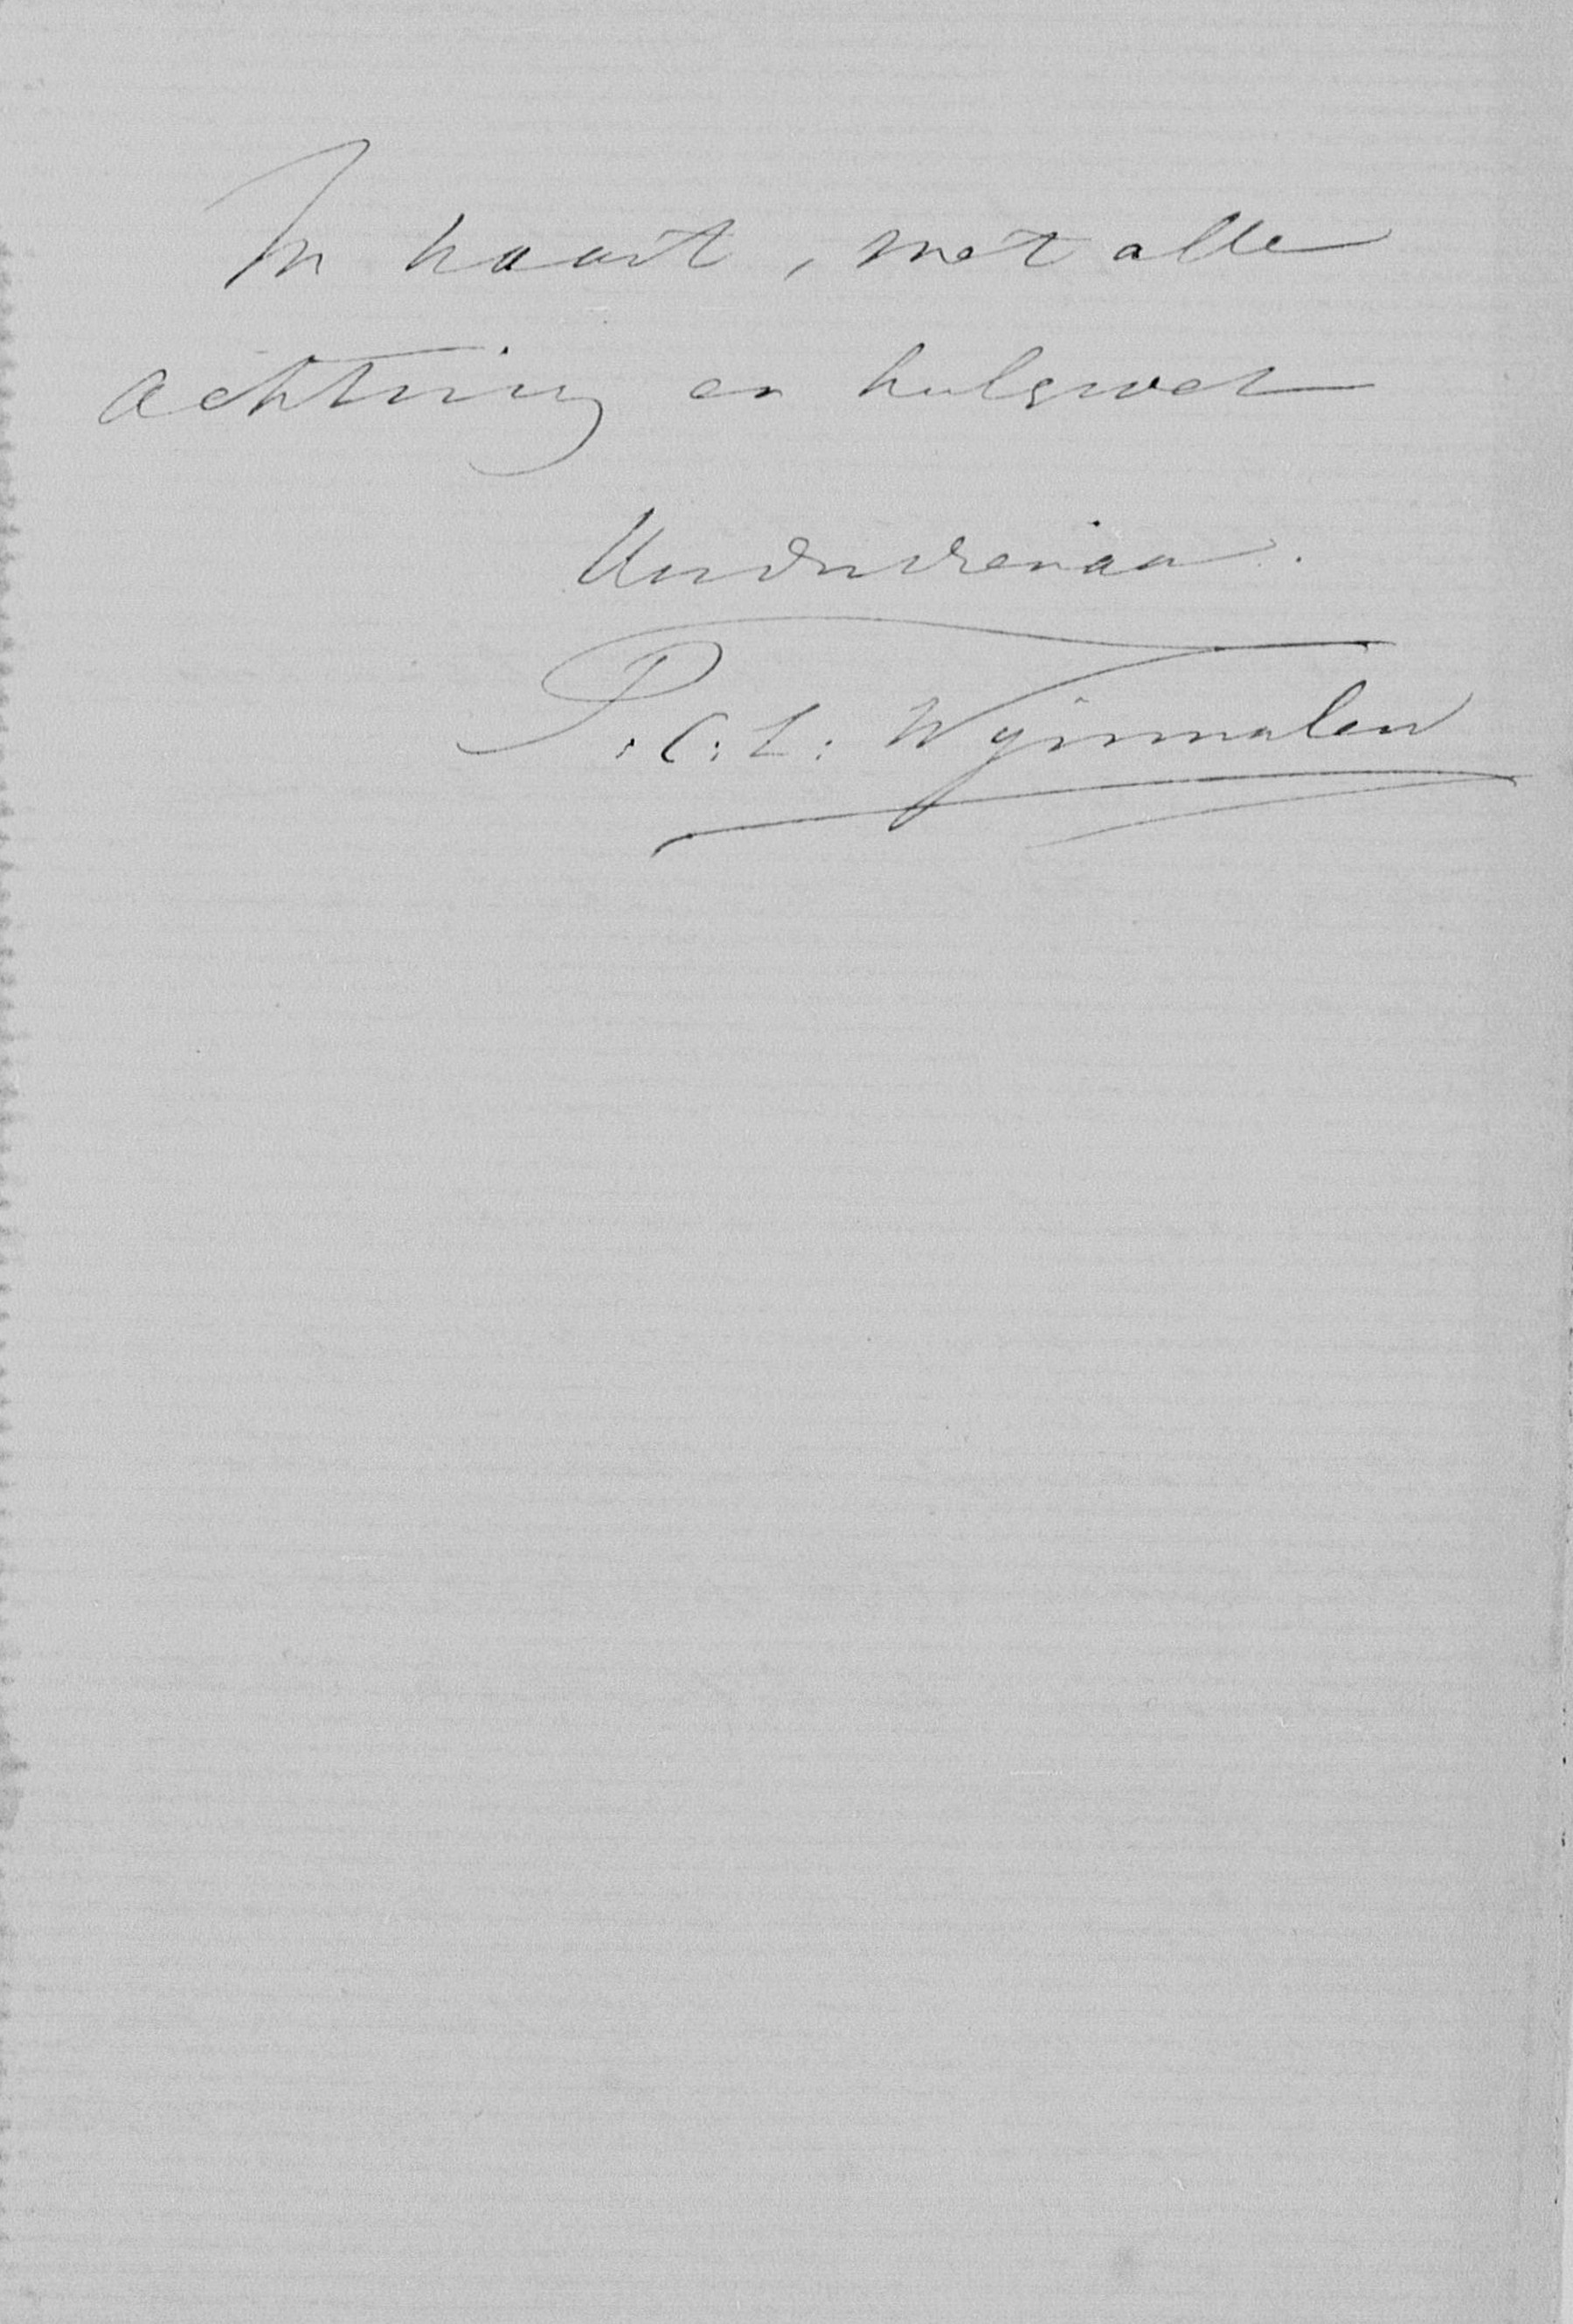 In haast, met alle
achting en hulp
Uw dw dienaar.
T. C. L. Wijnmalen